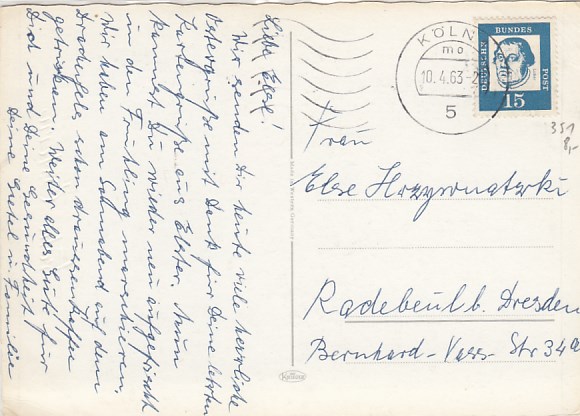 Liebe Else!
Wir senden Dir heute viele herzliche
Ostergrüße mit Dank für Deine letzten
Kartengrüße aus Elster. Nun
kannst Du wieder neu aufgefrischt
in den Frühling marschieren.
Wir haben am Sonnabend auf dem
Drachenfels schon draussen Kaffee
getrunken. Weiter alles Gute für
Dich und Deine Gesundheit
Deine Gretel u. Familie
KÖLN
mo
10.4.63-2
5
DEUTSCHE BUNDESPOST
15
351
8,-
Frau
Else
Radebeul b. Dresden
Bernhard-Voss-Str 34a